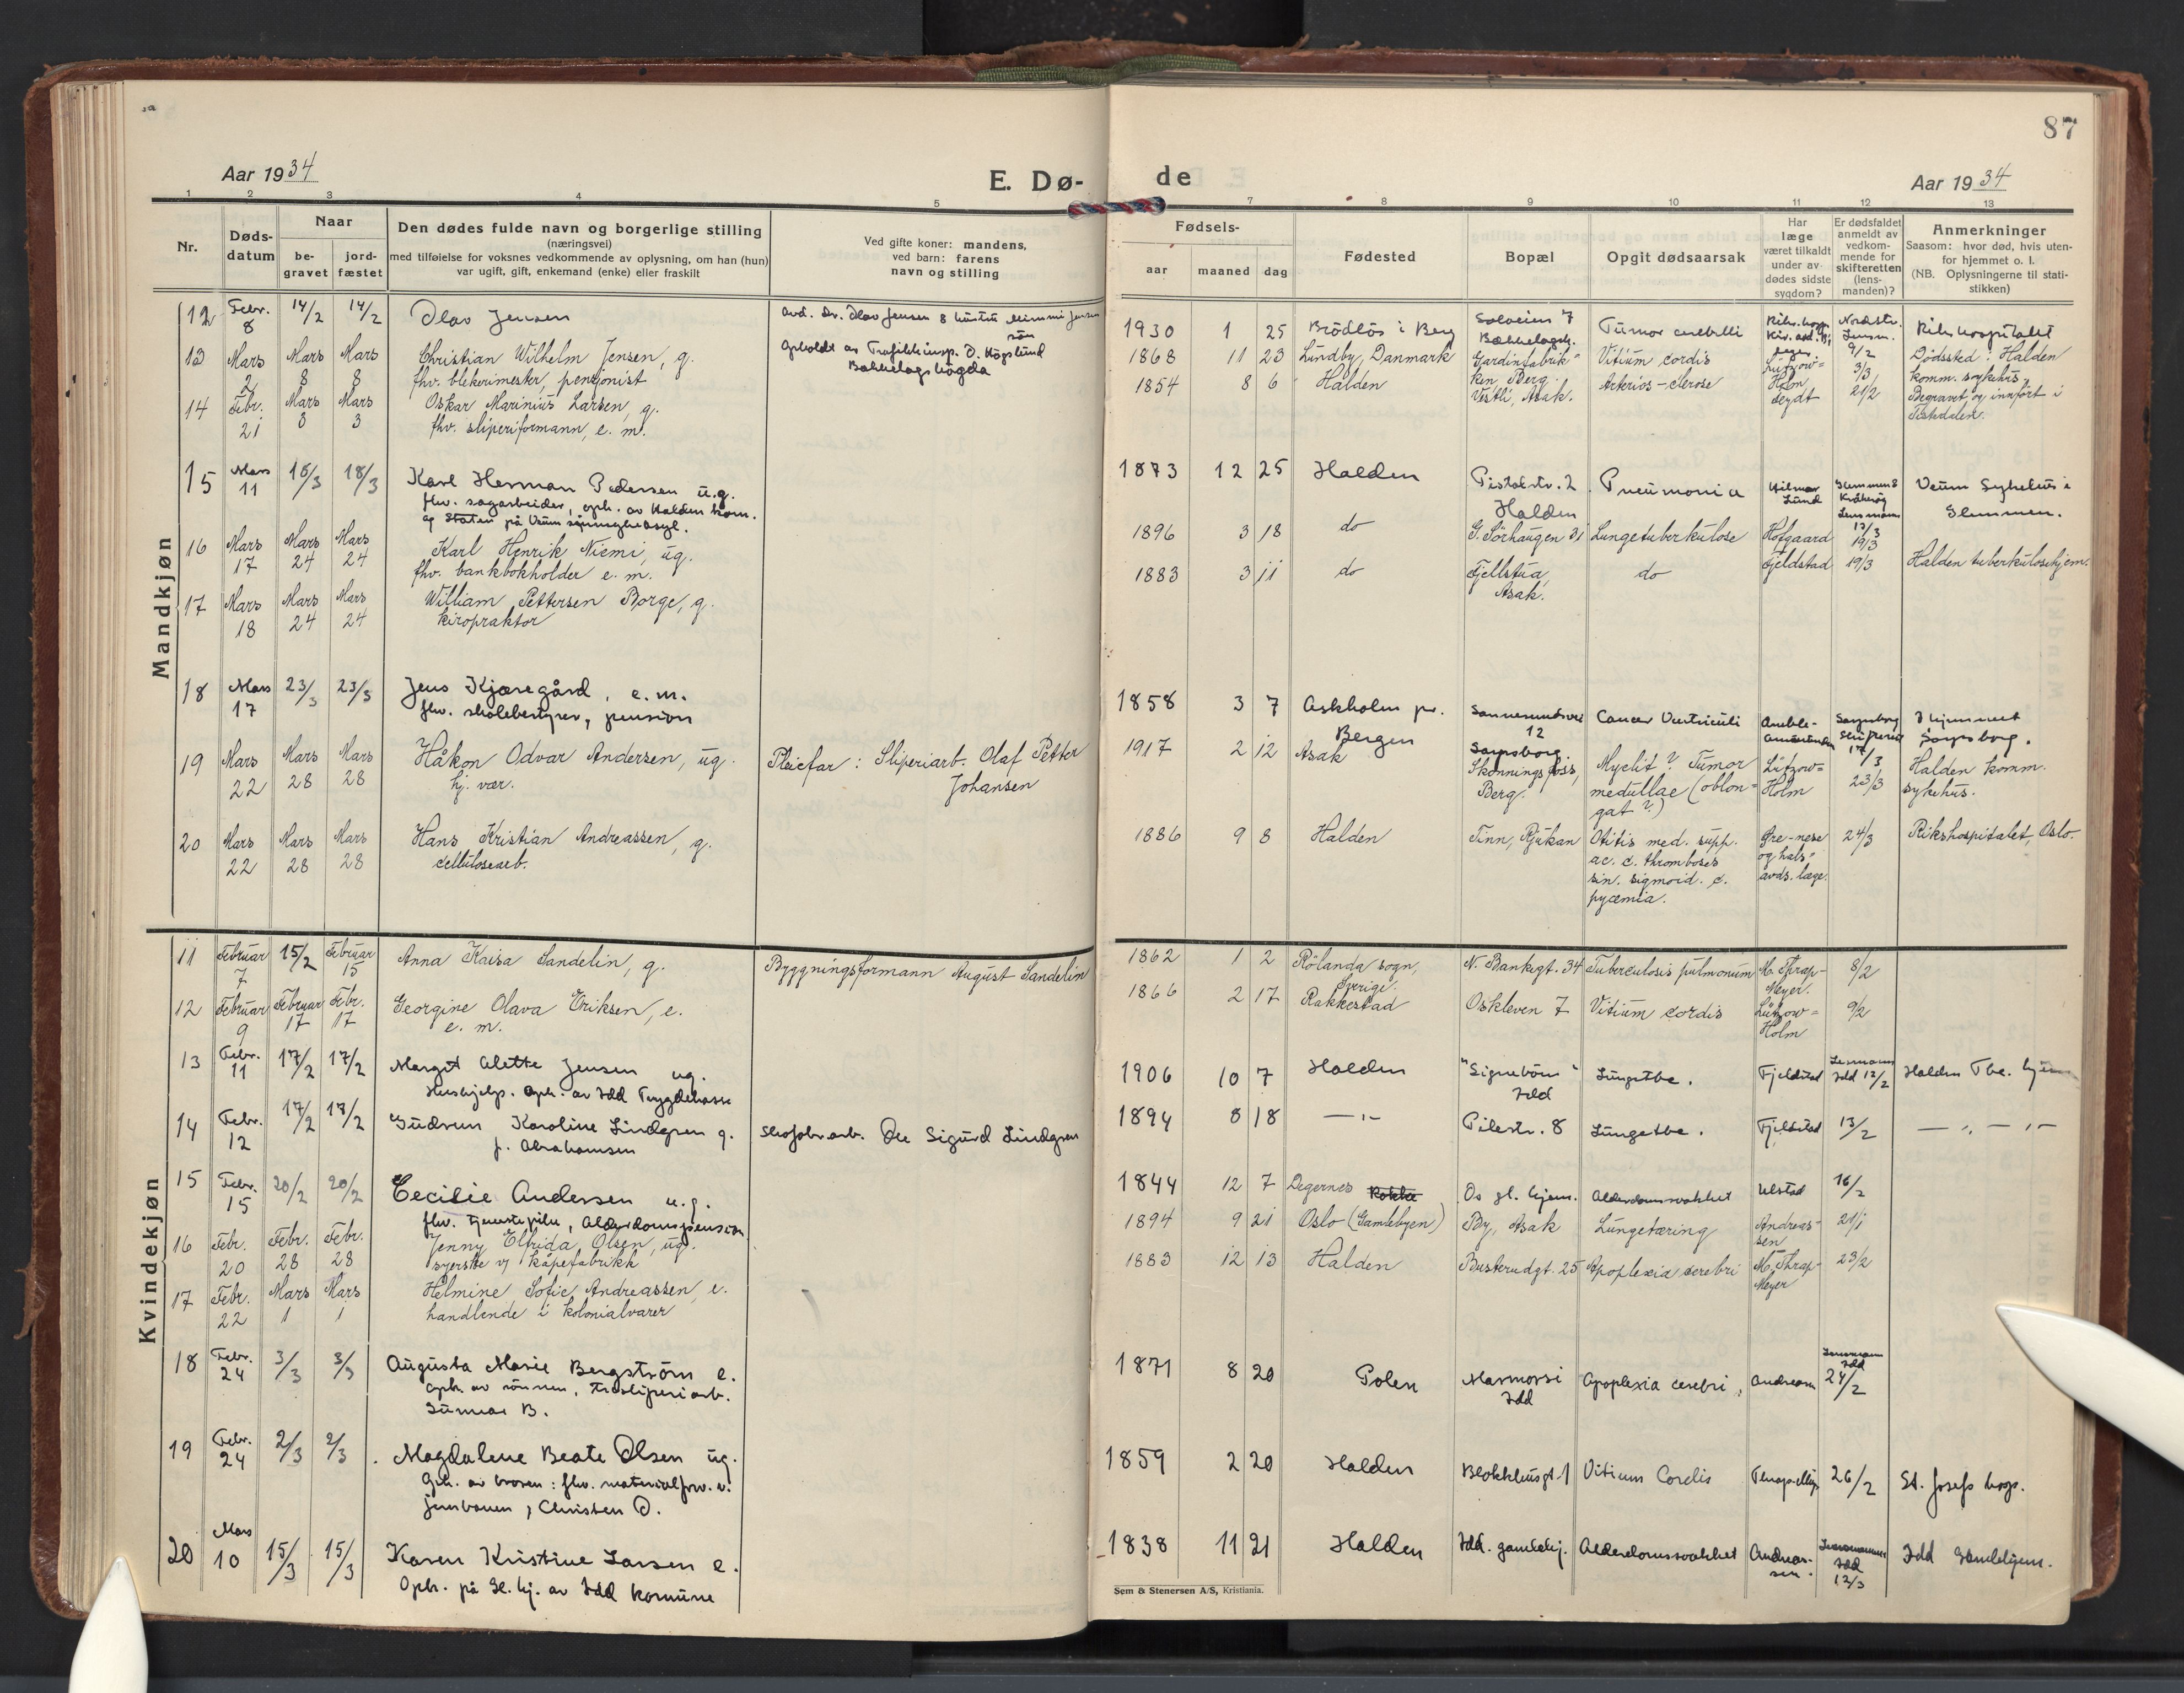 87
Aar 1934
E. Dø-
de
Aar 1934
1 2 3 4 5 7 8 9 10 11 12 13
Nr.
Døds-
datum
Naar
be-
gravet
jord-
fæstet
Den dødes fulde navn og borgerlige stilling
(næringsvei)
med tilføielse for voksnes vedkommende av oplysning, om han (hun)
var ugift, gift, enkemand (enke) eller fraskilt
Ved gifte koner: mandens,
ved barn: farens
navn og stilling
Fødsels-
aar maaned dag
Fødested
Bopæl
Opgit dødsaarsak
Har
læge
været tilkaldt
under av-
dødes sidste
sygdom?
Er dødsfaldet
anmeldt av
vedkom-
mende for
skifteretten
(lens-
manden)?
Anmerkninger
Saasom: hvor død, hvis uten-
for hjemmet o. l.
(NB. Oplysningerne til stati-
stikken)
Mandkjøn
12 Febr. 8 14/2 14/2 Olav Jensen
Olav Jensen & hustru Mimmi Jensen
sön
1930 1 25 Brödlös i Berg
Solveien 7
Bækkelagsh.
Tumor cerebelli
Nordstr.
Lensm.
9/2
Rikshospitalet
13 Mars 2 Mars 8 Mars 8 Christian Wilhelm Jensen, g.
fhv. blekerimester, pensjonist
Opholdt av Trafikkinsp. D. Högslund
Bakkelagshögda
1868 11 23 Lundby, Danmark
Gardinfabrik-
ken, Berg.
Vitium cordis
Lützow=
Holm
3/3
Dödssted: Halden
komm. sykehus.
14 Febr. 21 Mars 3 Mars 3 Oskar Marinius Larsen, g.
fhv. sliperiformann, e. m.
1854 8 6 Halden
Vestli, Asak.
Arterios-clerose
Seydt
21/2
Begravet og innført i
Tistedalen.
15 Mars 11 18/3 18/3 Karl Herman Pedersen u.g.
fhv. sagarbeider, oph. av Halden kom.
og Staten på Veum sinnsykeasyl.
1873 12 25 Halden
Pistolstr. 2
Halden
Pneumonia
Hilmar
Lund
Glemmen &
Kråkerøy
Lensmann
13/3
Veum Sykehus i
Glemmen.
16 Mars 17 Mars 24 Mars 24 Karl Henrik Niemi, ug.
fhv. bankbokholder e. m.
1896 3 18 do
G. Sörhaugen 31
Lungetuberkulose
Hofgaard
19/3
17 Mars 18 Mars 24 Mars 24 William Pettersen Borge, g.
kiropraktor
1883 3 11 do
Fjellstua,
Asak.
do
Fjeldstad
19/3
Halden tuberkulosehjem.
18 Mars 17 23/3 23/3 Jens Kjæregård, e. m.
fhv. skolebestyrer, pension
1858 3 7 Askholm pr.
Bergen
Sannesundsvei
12
Sarpsborg
Cancer Ventriculi
Sarpsborg
skifterett
17/3
I hjemmet
Sarpsborg.
19 Mars 22 Mars 28 Mars 28 Håkon Odvar Andersen, ug.
hj. vær.
Pleiefar: Sliperiarb. Olaf Petter
Johansen
1917 2 12 Asak
Skonningsfoss,
Berg.
Myelit? Tumor
medullae (oblon=
gat?)
Lützow=
Holm
23/3
Halden komm.
sykehus.
20 Mars 22 Mars 28 Mars 28 Hans Kristian Andreassen, g.
cellulosearb.
1886 9 8 Halden
Tinn, Rjukan
Otitis med. supp.
ac. c. thromboses
sin. sigmoid. c.
pyæmia.
Øre-nese
og hals-
avds. læge.
24/3
Rikshospitalet, Oslo.
Kvindekjøn
11 Februar 7 15/2 Februar 15 Anna Kaisa Sandelin, g.
Byggningsformann August Sandelin
1862 1 2 Rölanda sogn,
Sverige.
N. Bankgt. 34
Tuberculosis pulmonum
M. Thrap-
Meyer.
8/2
12 Februar 9 Februar 17 Febr. 17 Georgine Olava Eriksen, e.
e. m.
1866 2 17 Rakkestad
Oskleven 7
Vitium cordis
Lützow=
Holm
9/2
13 Febr. 11 17/2 17/2 Margit Alette Jensen ug.
Hushjelp. Oph. av Idd Trygdekasse
1906 10 7 Halden
"Signebøn"
Idd
Lungetbc.
Fjeldstad
Lensmann
Idd 12/2
Halden Tbc. hjem
14 Febr. 12 17/2 17/2 Gudrun Karoline Lindgren g.
f. Abrahamsen
Skofabr.arb. Ole Sigurd Lindgren
1894 8 18 —"—
Pilestr. 8
Lungetbc.
Fjeldstad
13/2
— " — " —
15 Febr. 15 20/2 20/2 Cecilie Andersen u.g.
fhv. tjenestepike, Alderdomspension
1844 12 7 Degernes
Os gl. hjem.
Alderdomssvakhet
Ulstad
16/2
16 Febr. 20 Febr. 28 Febr. 28 Jenny Elfrida Olsen, ug.
syerske v/ kåpefabrikk
1894 9 21 Oslo (Gamlebyen)
By, Asak
Lungetæring
Andreas-
sen
21/1
17 Febr. 22 Mars 1 Mars 1 Helmine Sofie Andreassen, e.
handlende i kolonialvarer
1883 12 13 Halden
Busterudgt. 25
Apoplexia cerebri
M. Thrap-
Meyer
23/2
18 Febr. 24 3/3 3/3 Augusta Marie Bergström e.
Oph. av sönnen, tresliperiarb.
Gunnar B.
1871 8 20 Polen
Marmorsi
Idd
Apoplexia cerebri,
Andreassen
Lensmann
Idd
24/2
19 Febr. 24 2/3 2/3 Magdalene Beate Olsen ug.
Oph. av broren: fhv. materialforv. v.
jernbanen, Christen O.
1859 2 20 Halden
Blokkhusgt. 1
Vitium Cordis
26/2
St. Josefs hosp.
20 Mars 10 15/3 15/3 Karen Kristine Larsen e.
Oph. på Gl. hj. av Idd Komune
1838 11 21 Halden
Idd. gamlehj.
Alderdomssvakhet
Andreas-
sen.
Lensmannen
Idd
12/3
Idd Gamlehjem.
Sem & Stenersen A/S, Kristiania.